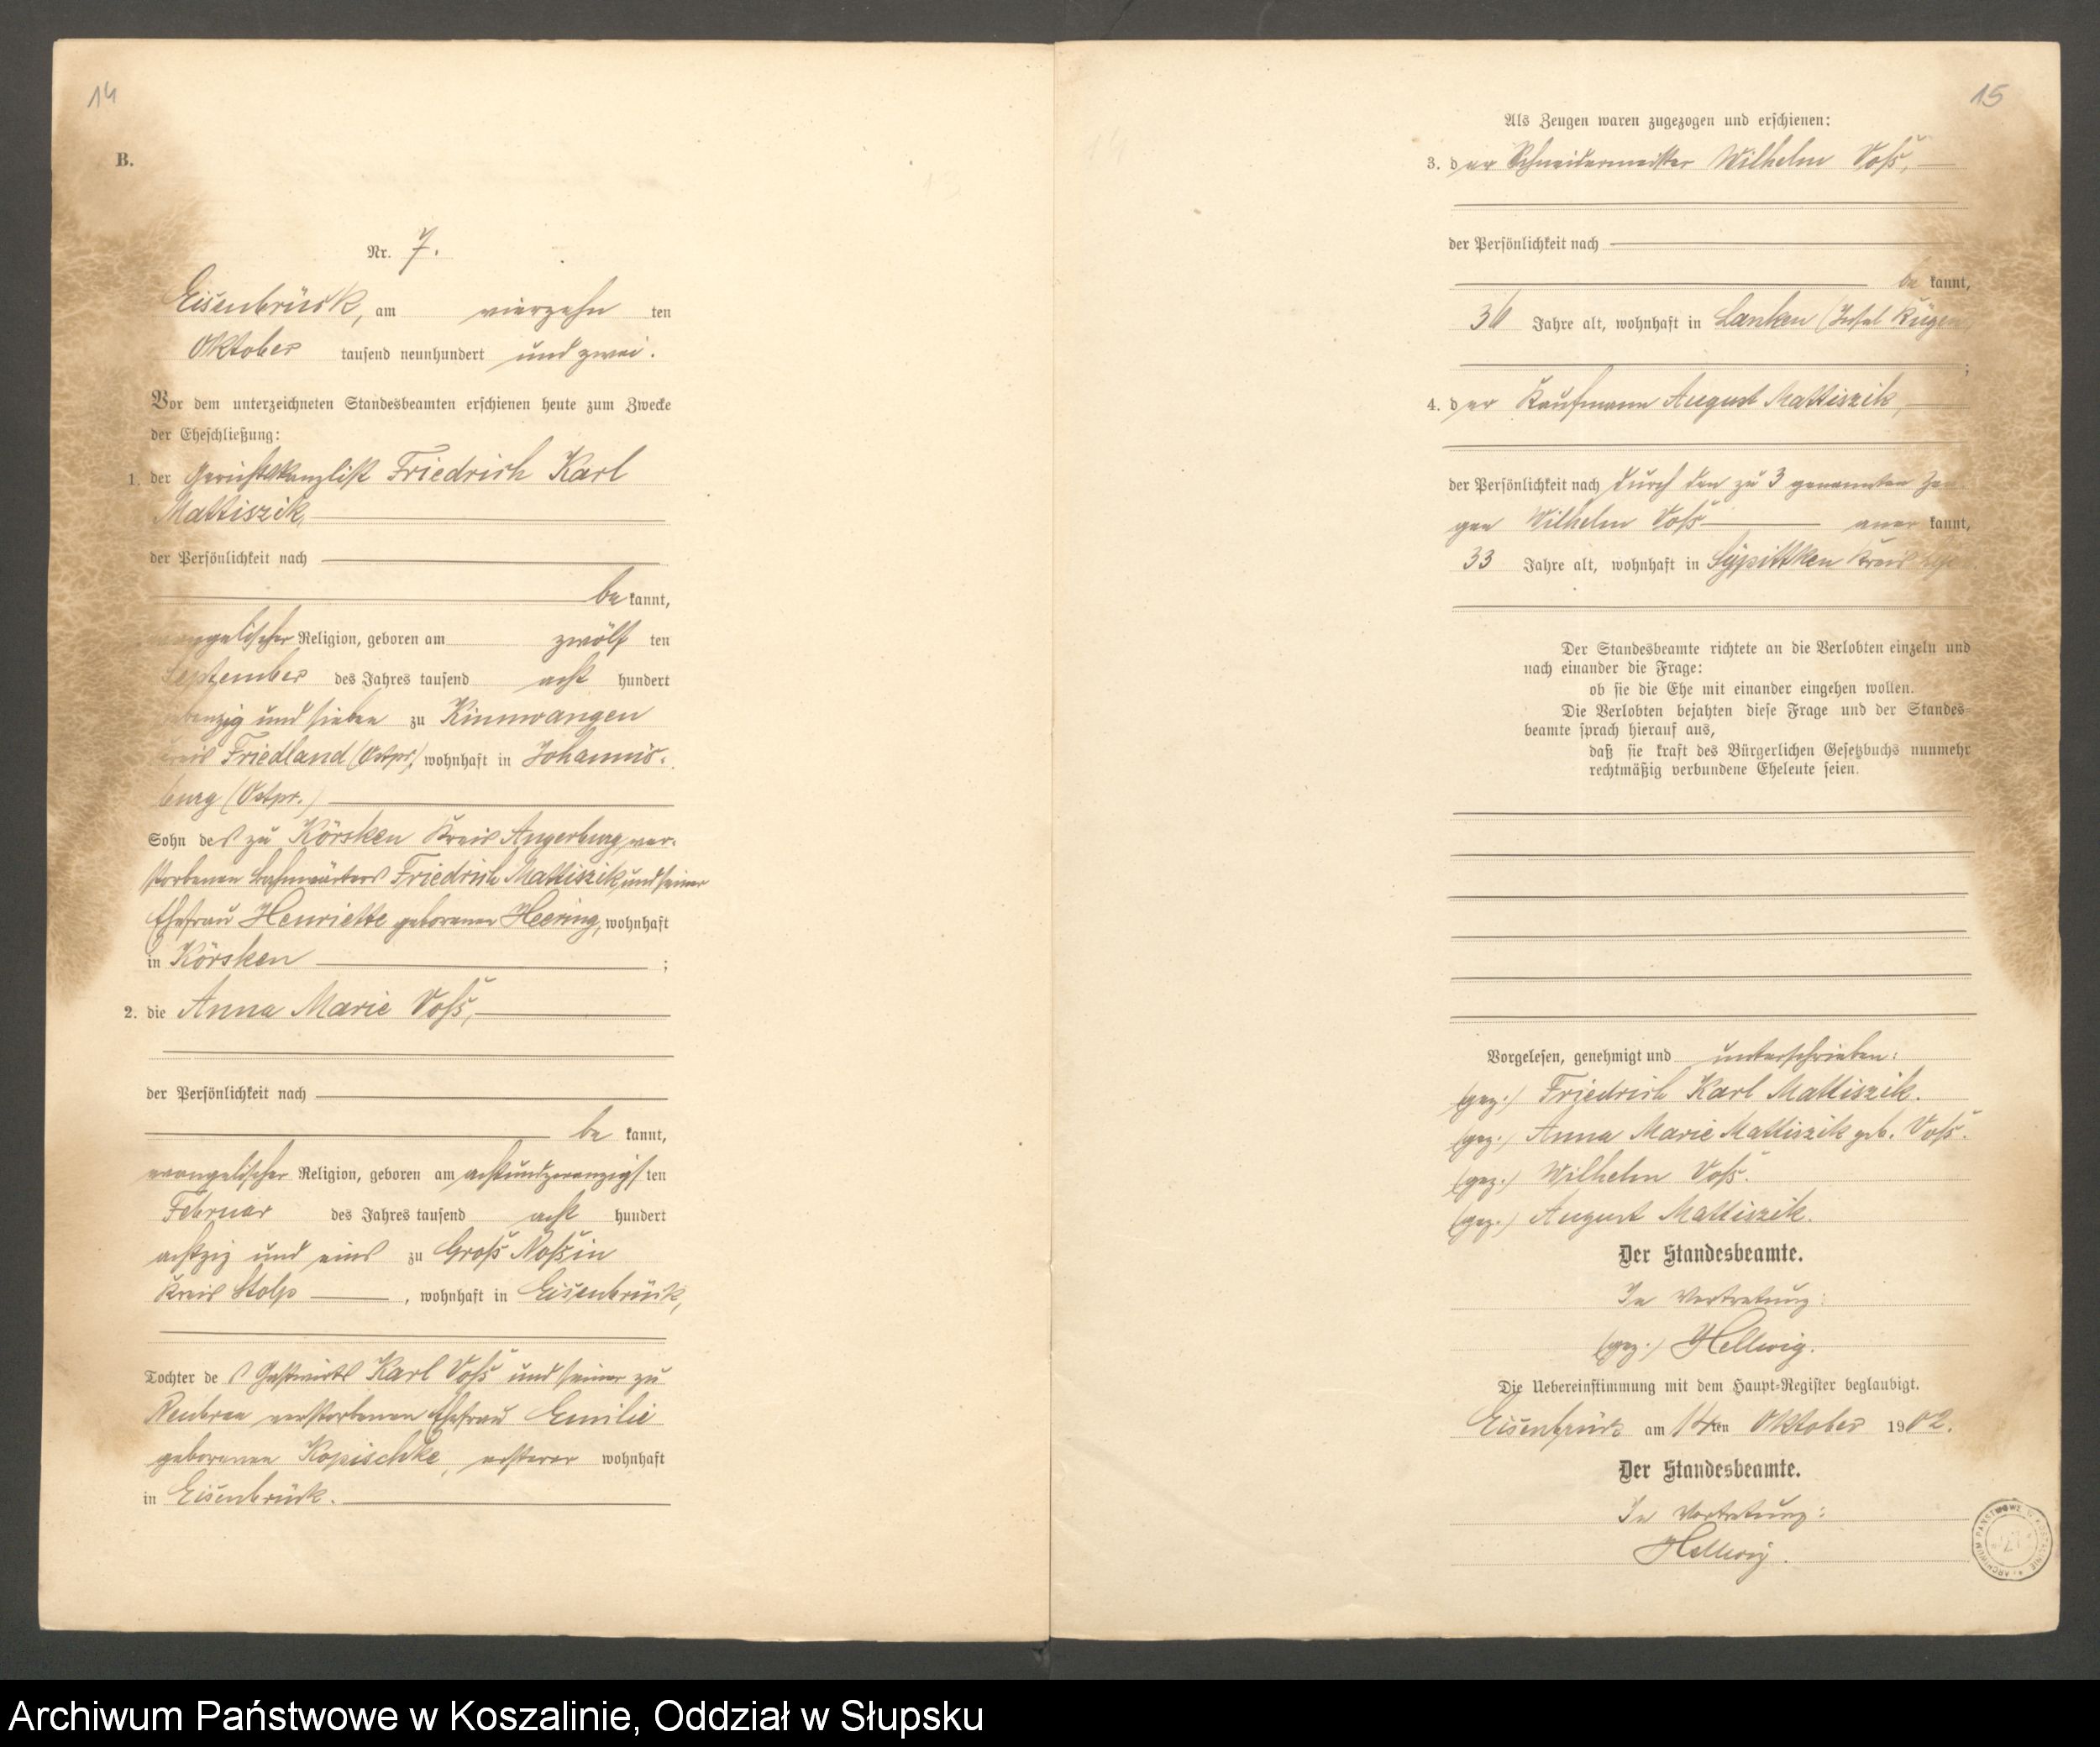 14
B.
Nr. 7.
Eisenbrück, am vierzehn ten
Oktober tausend neunhundert und zwei.
Vor dem unterzeichneten Standesbeamten erschienen heute zum Zwecke
der Eheschließung:
1. der Gerichtskanzlist Friedrich Karl
Mattiszik,
der Persönlichkeit nach
be kannt,
evangelischer Religion, geboren am zwölf ten
September des Jahres tausend acht hundert
siebenzig und sieben zu Kinnwangen
Kreis Friedland (Ostpr.), wohnhaft in Johannis-
burg (Ostpr.)
Sohn des zu Körsken Kreis Angerburg ver-
storbenen Bahnwärters Friedrich Mattiszik und seiner
Ehefrau Henriette geborenen Heering, wohnhaft
in Körsken ;
2. die Anna Marie Voß,
der Persönlichkeit nach
be kannt,
evangelischer Religion, geboren am achtundzwanzigsten
Februar des Jahres tausend acht hundert
achtzig und eins zu Groß Noßin
Kreis Stolp , wohnhaft in Eisenbrück,
Tochter des Gastwirts Karl Voß und seiner zu
verstorbenen Ehefrau Emilie
geborenen Kopischke, ersterer wohnhaft
in Eisenbrück.
15
Als Zeugen waren zugezogen und erschienen:
3. der Schneidermeister Wilhelm Voß,
der Persönlichkeit nach
be kannt,
36 Jahre alt, wohnhaft in Lanken (Insel Rügen)
;
4. der Kaufmann August Mattiszik,
der Persönlichkeit nach durch den zu 3 genannten Zeu
gen Wilhelm Voß aner kannt,
33 Jahre alt, wohnhaft in Sypittken Kreis Lyck
Der Standesbeamte richtete an die Verlobten einzeln und
nach einander die Frage:
ob sie die Ehe mit einander eingehen wollen.
Die Verlobten bejahten diese Frage und der Standes-
beamte sprach hierauf aus,
daß sie kraft des Bürgerlichen Gesetzbuchs nunmehr
rechtmäßig verbundene Eheleute seien.
Vorgelesen, genehmigt und unterschrieben:
(gez.) Friedrich Karl Mattiszik.
(gez.) Anna Marie Mattiszik geb. Voß.
(gez.) Wilhelm Voß.
(gez.) August Mattiszik.
Der Standesbeamte.
In Vertretung:
(gez.) Hellwig.
Die Uebereinstimmung mit dem Haupt-Register beglaubigt.
Eisenbrück am 14ten Oktober 1902.
Der Standesbeamte.
In Vertretung:
Hellwig.
Archiwum Państwowe w Koszalinie, Oddział w Słupsku